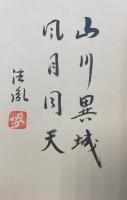 山川異域
風月同天
浩胤